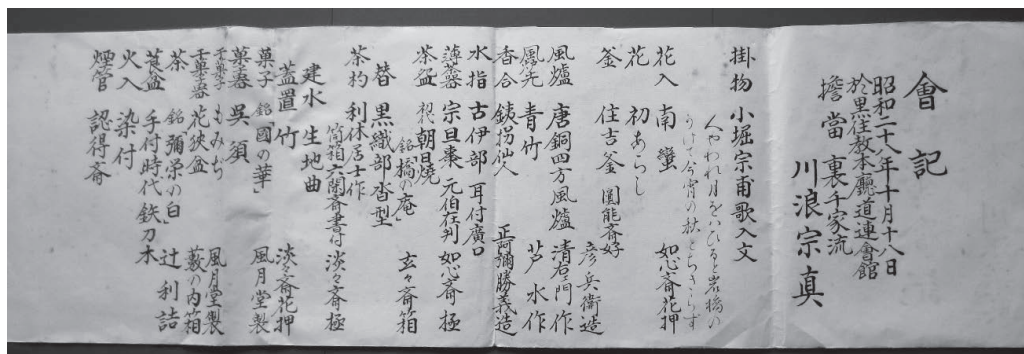 會記
昭和二十八年十月十八日
於黒住教本廳道連會館
擔當 裏千家流
川浪宗真
掛物 小堀宗甫歌入文
人やわれ月をいひると岩橋の
花入 南蠻 如心斎花押
花 初あらし
釜 住吉釜 圓能斎好
彦兵衛造
風爐 唐銅四方風爐 清右門作
風先 青竹 芦水作
香合 鉄拐仙人 正阿彌勝義造
水指 古伊部 耳付廣口
薄器 宗旦棗 元伯在判 如心斎極
茶盌 朝日焼
銘橋の庵 玄々斎箱
替 黒織部沓型
茶杓 利休居士作
筒箱六閑斎書付 淡々斎極
建水 生地曲
蓋置 竹 淡々斎花押
菓子 銘國の華 風月堂製
菓器 呉須
干菓子 もみぢ 風月堂製
干菓器 花狭盆 藪の内箱
茶 銘彌栄の白 辻利詰
莨盆 手付時代鉄刀木
火入 染付
煙管 認得斎